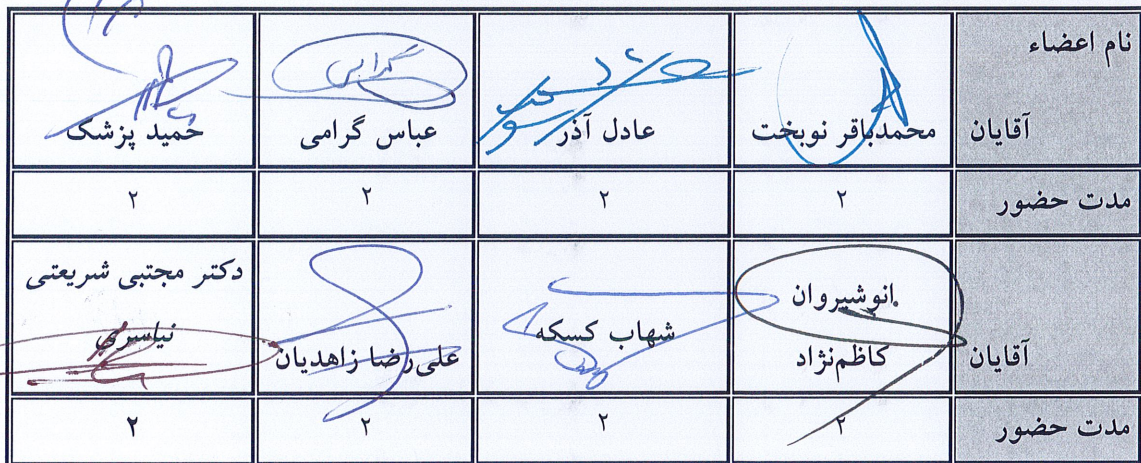 نام اعضاء
آقایان محمدباقر نوبخت عادل آذر عباس گرامی حمید پزشک
مدت حضور ۲ ۲ ۲ ۲
آقایان انوشیروان کاظم‌نژاد شهاب کسکه علی‌رضا زاهدیان دکتر مجتبی شریعتی نیاسری
مدت حضور ۲ ۲ ۲ ۲